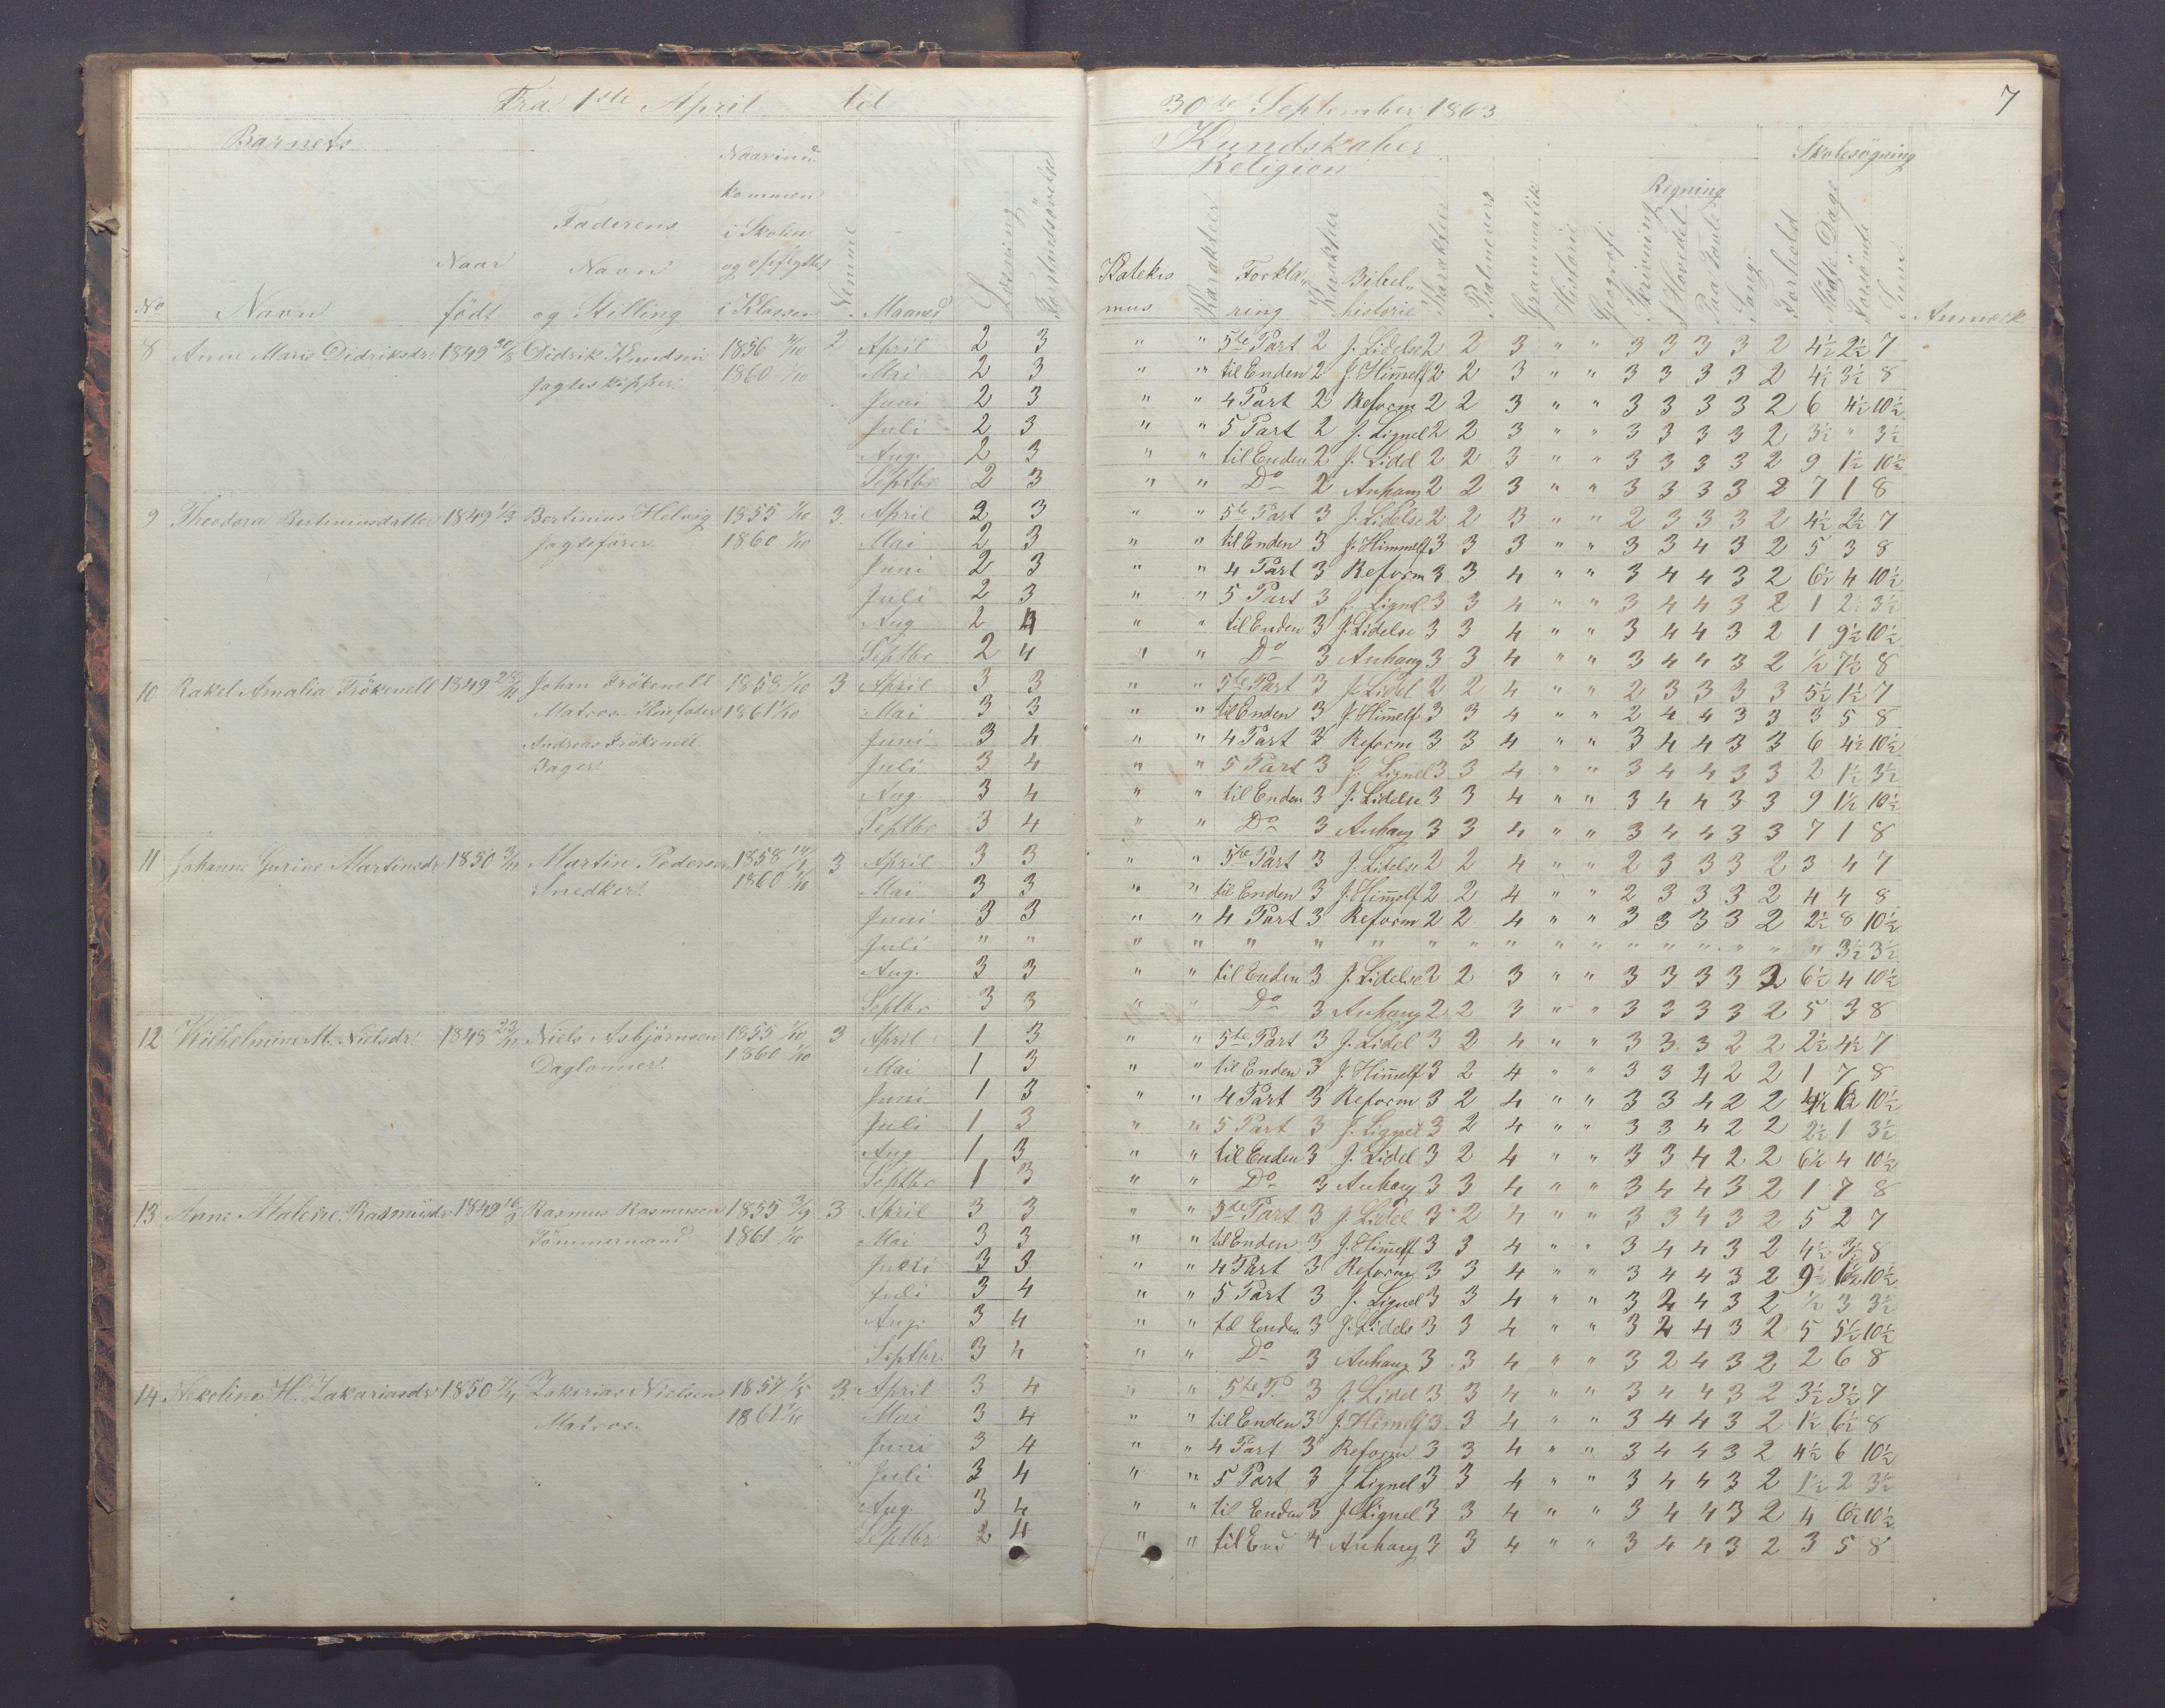 Fra 1ste April til
30te September 1863
7
Barnets
Kundskaber
Skolesøgning
Religion
Regning
No Navn Naar født Faderens Navn og Stilling Naar indkommen i Skolen og opflyttet i Klassen Nemme Maaned Læsning Forstandsøvelse
Katekismus Karakter Forklaring Karakter Bibelhistorie Karakter Salmevers Grammatik Historie Geografi Skrivning I Hovedet Paa Tavle Sang Forhold Mødte Dage Forsømte Sum Anmærk
8 Anne Marie Didriksdr. 1849 20/8 Didrik Knudsen 1856 1/10 2 April 2 3 " " 5te Part 2 J. Lidelse 2 2 3 " " 3 3 3 3 2 4½ 2½ 7
Jagteskipper 1860 1/10 Mai 2 3 " " til Enden 2 J. Himelf 2 2 3 " " 3 3 3 3 2 4½ 3½ 8
Juni 2 3 " " 4 Part 2 Reform 2 2 3 " " 3 3 3 3 2 6 4½ 10½
Juli 2 3 " " 5 Part 2 J. Lignel 2 2 3 " " 3 3 3 3 2 3½ " 3½
Aug. 2 3 " " til Enden 2 J. Lidel 2 2 3 " " 3 3 3 3 2 9 1½ 10½
Septbr 2 3 " " Do 2 Anhang 2 2 3 " " 3 3 3 3 2 7 1 8
9 Theodora Bertiniusdatter 1849 1/3 Bertinius Helvig 1855 1/10 3. April 2 3 " " 5te Part 3 J. Lidelse 2 2 3 " " 2 3 3 3 2 4½ 2½ 7
Jagtefører 1860 1/10 Mai 2 3 " " til Enden 3 J. Himmelf 3 3 3 " " 3 3 4 3 2 5 3 8
Juni 2 3 " " 4 Part 3 Reform 3 3 4 " " 3 4 4 3 2 6½ 4 10½
Juli 2 3 " " 5 Part 3 J. Lignel 3 3 4 " " 3 4 4 3 2 1 2½ 3½
Aug 2 4 " " til Enden 3 J. Lidelse 3 3 4 " " 3 4 4 3 2 1 9½ 10½
Septbr 2 4 " " Do 3 Anhang 3 3 4 " " 3 4 4 3 2 ½ 7½ 8
10 Rakel Amalia Frökenell 1849 28/11 Johan Frökenell 1858 1/10 3 April 3 3 " " 5te Part 3 J. Lidel 2 2 4 " " 2 3 3 3 3 5½ 1½ 7
Matros. Pleiefader 1861 1/10 Mai 3 3 " " til Enden 3 J. Himelf 3 3 4 " " 2 4 4 3 3 3 5 8
Andreas Frökenell Juni 3 4 " " 4 Part 3 Reform 3 3 4 " " 3 4 4 3 3 6 4½ 10½
Bager Juli 3 4 " " 5 Part 3 J. Lignel 3 3 4 " " 3 4 4 3 3 2 1½ 3½
Aug. 3 4 " " til Enden 3 J. Lidelse 3 3 4 " " 3 4 4 3 3 9 1½ 10½
Septbr 3 4 " " Do 3 Anhang 3 3 4 " " 3 4 4 3 3 7 1 8
11 Johanne Gurine Martinsdr 1850 Martin Pedersen 1858 3 April 3 3 " " 5te Part 3 J. Lidelse 2 2 4 " " 2 3 3 3 2 3 4 7
Snedker 1860 1/10 Mai 3 3 " " til Enden 3 J. Himelf 2 2 4 " " 2 3 3 3 2 4 4 8
Juni 3 3 " " 4 Part 3 Reform 2 2 4 " " 3 3 3 3 2 2½ 8 10½
Juli " " " " " " " " " " " " " " " " " " 3½ 3½
Aug. 3 3 " " til Enden 3 J. Lidelse 2 2 3 " " 3 3 3 3 2 6½ 4 10½
Septbr 3 3 " " Do 3 Anhang 2 2 3 " " 3 3 3 3 2 5 3 8
12 Wilhelmine M. Nielsdr. 1848 Niels Asbjørnsen 1855 1/10 3 April 1 3 " " 5te Part 3 J. Lidel 3 2 4 " " 3 3 3 2 2 2½ 4½ 7
Daglønner 1860 1/10 Mai 1 3 " " til Enden 3 J. Himelf 3 2 4 " " 3 3 4 2 2 1 7 8
Juni 1 3 " " 4 Part 3 Reform 3 2 4 " " 3 3 4 2 2 10½
Juli 1 3 " " 5 Part 3 J. Lignel 3 2 4 " " 3 3 4 2 2 2½ 1 3½
Aug 1 3 " " til Enden 3 J. Lidel 3 2 4 " " 3 3 4 2 2 6½ 4 10½
Septbr 1 3 " " Do 3 Anhang 3 3 4 " " 3 4 4 3 2 1 7 8
13 Anne Malene Rasmusdr 1849 16/3 Rasmus Rasmussen 1855 3/9 3 April 3 3 " " 5te Part 3 J. Lidel 3 2 4 " " 3 3 4 3 2 5 2 7
Tömmermand 1861 1/10 Mai 3 3 " " til Enden 3 J. Himelf 3 3 4 " " 3 4 4 3 2 4½ 3½ 8
Juni 3 3 " " 4 Part 3 Reform 3 3 4 " " 3 4 4 3 2 9 10½
Juli 3 4 " " 5 Part 3 J. Lignel 3 3 4 " " 3 4 4 3 2 ½ 3 3½
Aug. 3 4 " " til Enden 3 J. Lidels 3 3 4 " " 3 4 4 3 2 5 5½ 10½
Septbr. 3 4 " " Do 3 Anhang 3 3 4 " " 3 2 4 3 2 2 6 8
14 Nikoline H. Zakariasdr 1850 Zakarias Nielsen 1857 1/5 3. April 3 4 " " 5te P. 3 J. Lidel 3 3 4 " " 3 4 4 3 2 3½ 3½ 7
Matros. 1861 1/10 Mai 3 4 " " til Enden 3 J. Himelf 3 3 4 " " 3 4 4 3 2 1½ 6½ 8
Juni 3 4 " " 4 Part 3 Reform 3 3 4 " " 3 4 4 3 2 4½ 6 10½
Juli 3 4 " " 5 Part 3 J Lignel 3 3 4 " " 3 4 4 3 2 1½ 2 3½
Aug. 3 4 " " til Enden 3 J. Lignel 3 3 4 " " 3 4 4 3 2 4 6½ 10½
Septbr 2 4 " " til End 4 Anhang 3 3 4 " " 3 4 4 3 2 3 5 8